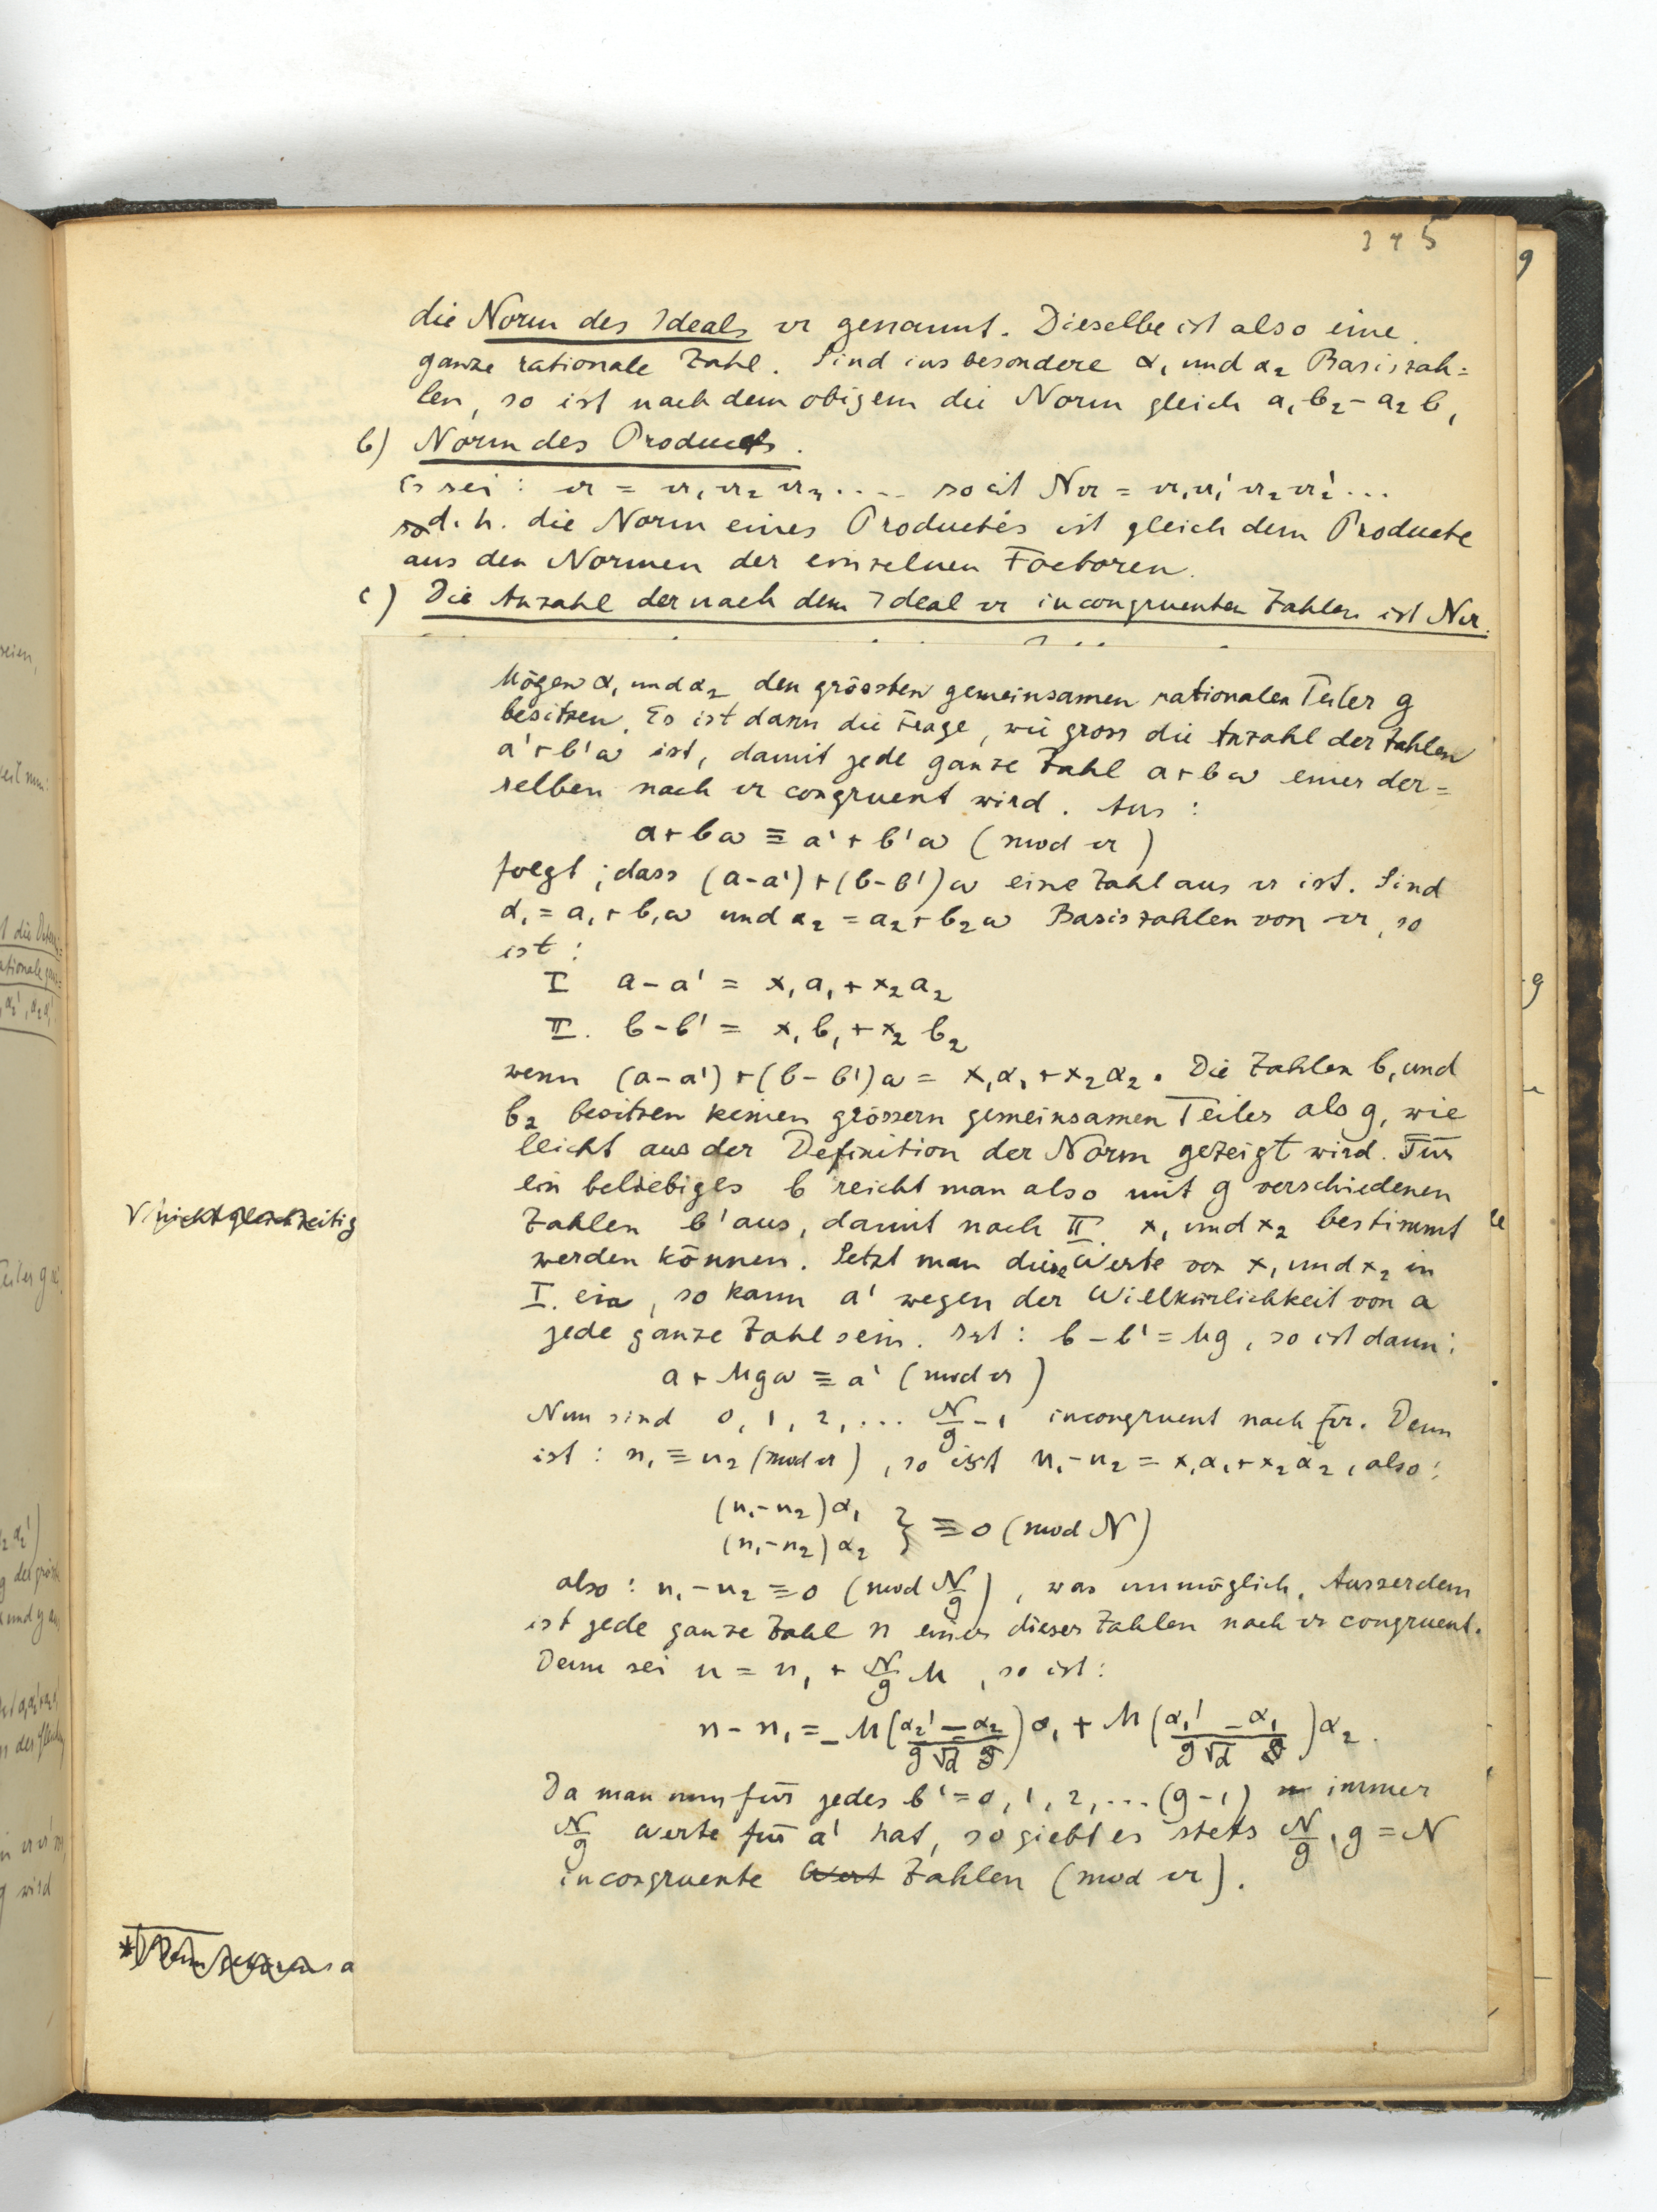 345
die Norm des Ideals 𝔞 genannt. Dieselbe ist also eine
ganze rationale Zahl. Sind insbesondere α₁ und α₂ Basiszah=
len, so ist nach dem obigem die Norm gleich a₁b₂ - a₂b₁
b) Norm des Products.
Es sei: 𝔞 = 𝔞₁𝔞₂𝔞₃..... so ist N𝔞 = 𝔞₁𝔞₁'𝔞₂𝔞₂'...
d. h. die Norm eines Productes ist gleich dem Producte
aus den Normen der einzelnen Factoren.
c) Die Anzahl der nach dem Ideal 𝔞 incongruenten Zahlen ist N𝔞.
Mögen α₁ und α₂ den grössten gemeinsamen rationalen Teiler g
besitzen. Es ist dann die Frage, wie gross die Anzahl der Zahlen
a'+b'ω ist, damit jede ganze Zahl a+bω einer der=
selben nach 𝔞 congruent wird. Aus:
a+bω ≡ a'+b'ω (mod 𝔞)
folgt; dass (a-a')+(b-b')ω eine Zahl aus 𝔞 ist. Sind
α₁ = a₁+b₁ω und α₂ = a₂+b₂ω Basiszahlen von 𝔞, so
ist:
I a-a' = x₁a₁+x₂a₂
II. b-b' = x₁b₁+x₂b₂
wenn (a-a')+(b-b')ω = x₁α₁+x₂α₂. Die Zahlen b₁ und
b₂ besitzen keinen grössern gemeinsamen Teiler als g, wie
leicht aus der Definition der Norm gezeigt wird. Für
ein beliebiges b reicht man also mit g verschiedenen
√ nicht gleichzeitig
Zahlen b' aus, damit nach II. x₁ und x₂ bestimmt
werden können. Setzt man diese Werte von x₁ und x₂ in
I. ein, so kann a' wegen der Willkürlichkeit von a
jede ganze Zahl sein. Ist: b-b' = Mg, so ist dann:
a+Mgω ≡ a' (mod 𝔞)
Nun sind 0, 1, 2, ... N/g - 1 incongruent nach 𝔞. Denn
ist: n₁ ≡ n₂ (mod 𝔞), so ist n₁-n₂ = x₁α₁+x₂α₂, also:
(n₁-n₂)α₁
(n₁-n₂)α₂ } ≡ 0 (mod N)
also: n₁-n₂ ≡ 0 (mod N/g), was unmöglich. Ausserdem
ist jede ganze Zahl n einer dieser Zahlen nach 𝔞 congruent.
Denn sei n = n₁ + N/g M, so ist:
n-n₁ = -M((α₂'-α₂)/(g√d))α₁ + M((α₁'-α₁)/(g√d))α₂.
Da man nun für jedes b' = 0, 1, 2, ... (g-1) immer
N/g Werte für a' hat, so giebt es stets N/g . g = N
incongruente Wert Zahlen (mod 𝔞).